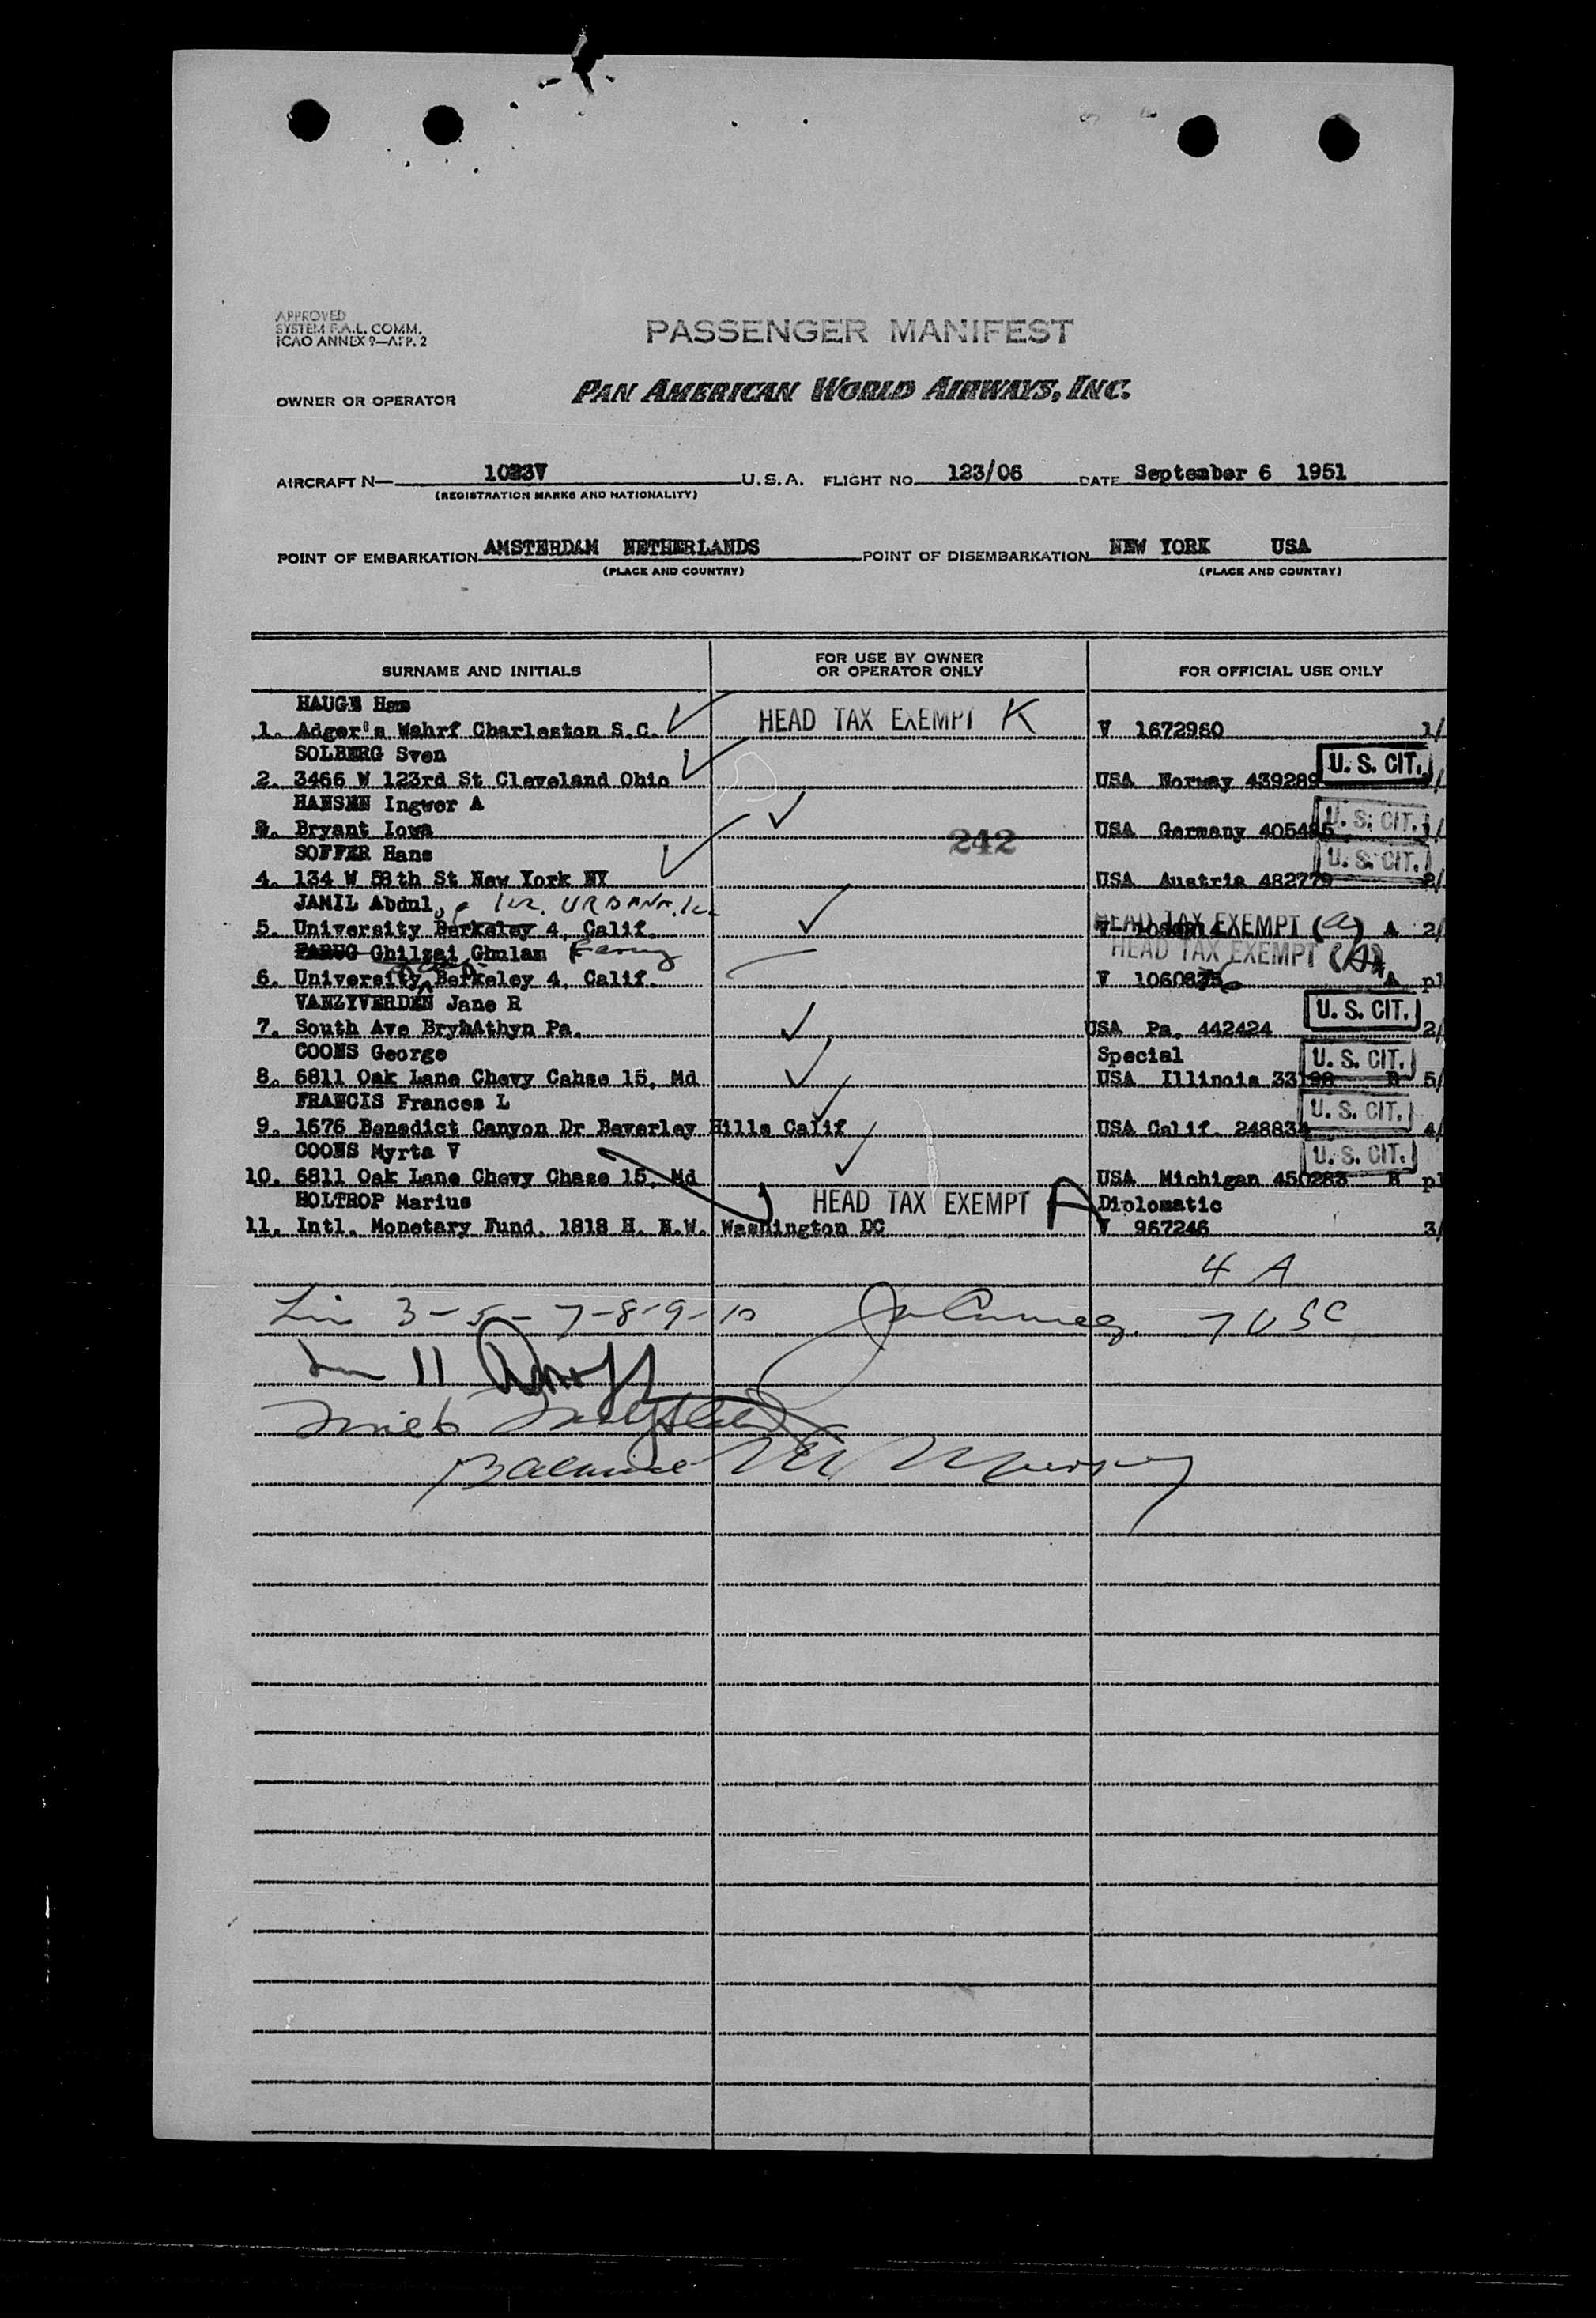 APPROVED
SYSTEM F.A.L. COMM.
ICAO ANNEX 9—APP. 2
PASSENGER MANIFEST
OWNER OR OPERATOR PAN AMERICAN WORLD AIRWAYS, INC.
AIRCRAFT N— 1023V U.S.A. FLIGHT NO. 123/06 DATE September 6 1951
(REGISTRATION MARKS AND NATIONALITY)
POINT OF EMBARKATION AMSTERDAM NETHERLANDS POINT OF DISEMBARKATION NEW YORK USA
(PLACE AND COUNTRY) (PLACE AND COUNTRY)
SURNAME AND INITIALS FOR USE BY OWNER OR OPERATOR ONLY FOR OFFICIAL USE ONLY
HAUGE
1. Adger's Wahrf Charleston S.C. HEAD TAX EXEMPT K V 1672960 1/
SOLBERG Sven
2. 3466 W 123rd St Cleveland Ohio USA Norway 439289 U. S. CIT.
HANSEN Ingwer A
3. Bryant Iowa 242 USA Germany U. S. CIT. 1/
SOFFER Hans
4. 134 W 58th St New York NY USA Austria 482779 U. S. CIT. 2/
JAMIL Abdul URBANA. Ill
5. University Berkeley 4, Calif. V HEAD TAX EXEMPT (A) A 2/
FARUG Ghilzai Ghulam
6. University Berkeley 4, Calif. V HEAD TAX EXEMPT (A) A pl
VANZYVERDEN Jane R
7. South Ave BrynAthyn Pa. USA Pa. 442424 U. S. CIT. 2/
COONS George Special
8. 6811 Oak Lane Chevy Cahse 15, Md USA Illinois U. S. CIT. 5/
FRANCIS Frances L
9. 1676 Benedict Canyon Dr Beverley Hills Calif USA Calif. U. S. CIT. 4/
COONS Myrta V
10. 6811 Oak Lane Chevy Chase 15, Md USA Michigan 450283 U. S. CIT. pl
HOLTROP Marius HEAD TAX EXEMPT A Diplomatic
11. Intl. Monetary Fund, 1818 H. N.W. Washington DC V 967246 3/
4 A
3-5-7-8-9-10 7 USC
11
Balance